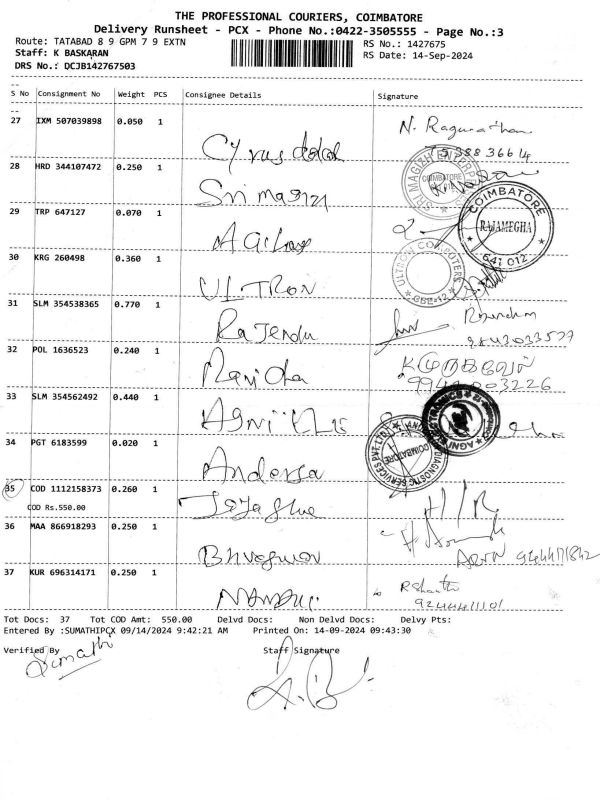 THE PROFESSIONAL COURIERS, COIMBATORE
Delivery Runsheet - PCX - Phone No.:0422-3505555 - Page No.:3
Route: TATABAD 8 9 GPM 7 9 EXTN
RS No.: 1427675
Staff: K BASKARAN
RS Date: 14-Sep-2024
DRS No.: DCJB142767503
S No Consignment No Weight PCS Consignee Details Signature
27 IXM 507039898 0.050 1 Cyrus N. Ragunathan
28 HRD 344107472 0.250 1 Sri magizh
SRI MAGIZH ENTERPRISES COIMBATORE
29 TRP 647127 0.070 1
COIMBATORE RAJAMEGHA 641 012
30 KRG 260498 0.360 1 ULTRON
ULTRON COMPUTERS CBE-12
31 SLM 354538365 0.770 1 Rajendra
9843033577
32 POL 1636523 0.240 1 Ravichan
33 SLM 354562492 0.440 1 Agni
34 PGT 6183599 0.020 1 Anderson
DIAGNOSTIC SERVICES PVT LTD COIMBATORE
35 COD 1112158373 0.260 1 Jeyashree
COD Rs.550.00
36 MAA 866918293 0.250 1 Bhvagwan
ARUN 9244171842
37 KUR 696314171 0.250 1
R Shanthi
Tot Docs: 37 Tot COD Amt: 550.00 Delvd Docs: Non Delvd Docs: Delvy Pts:
Entered By :SUMATHIPCX 09/14/2024 9:42:21 AM Printed On: 14-09-2024 09:43:30
Verified By Staff Signature
Sumathi